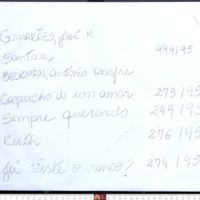 GUIMARÃES, José M.
Santa 999/95
BECKMAN, Antônio Onofre
Capucho de um amar 273/95
Sempre querendo 249/95
Ruth 276/95
Já viste o nunco? 274/95